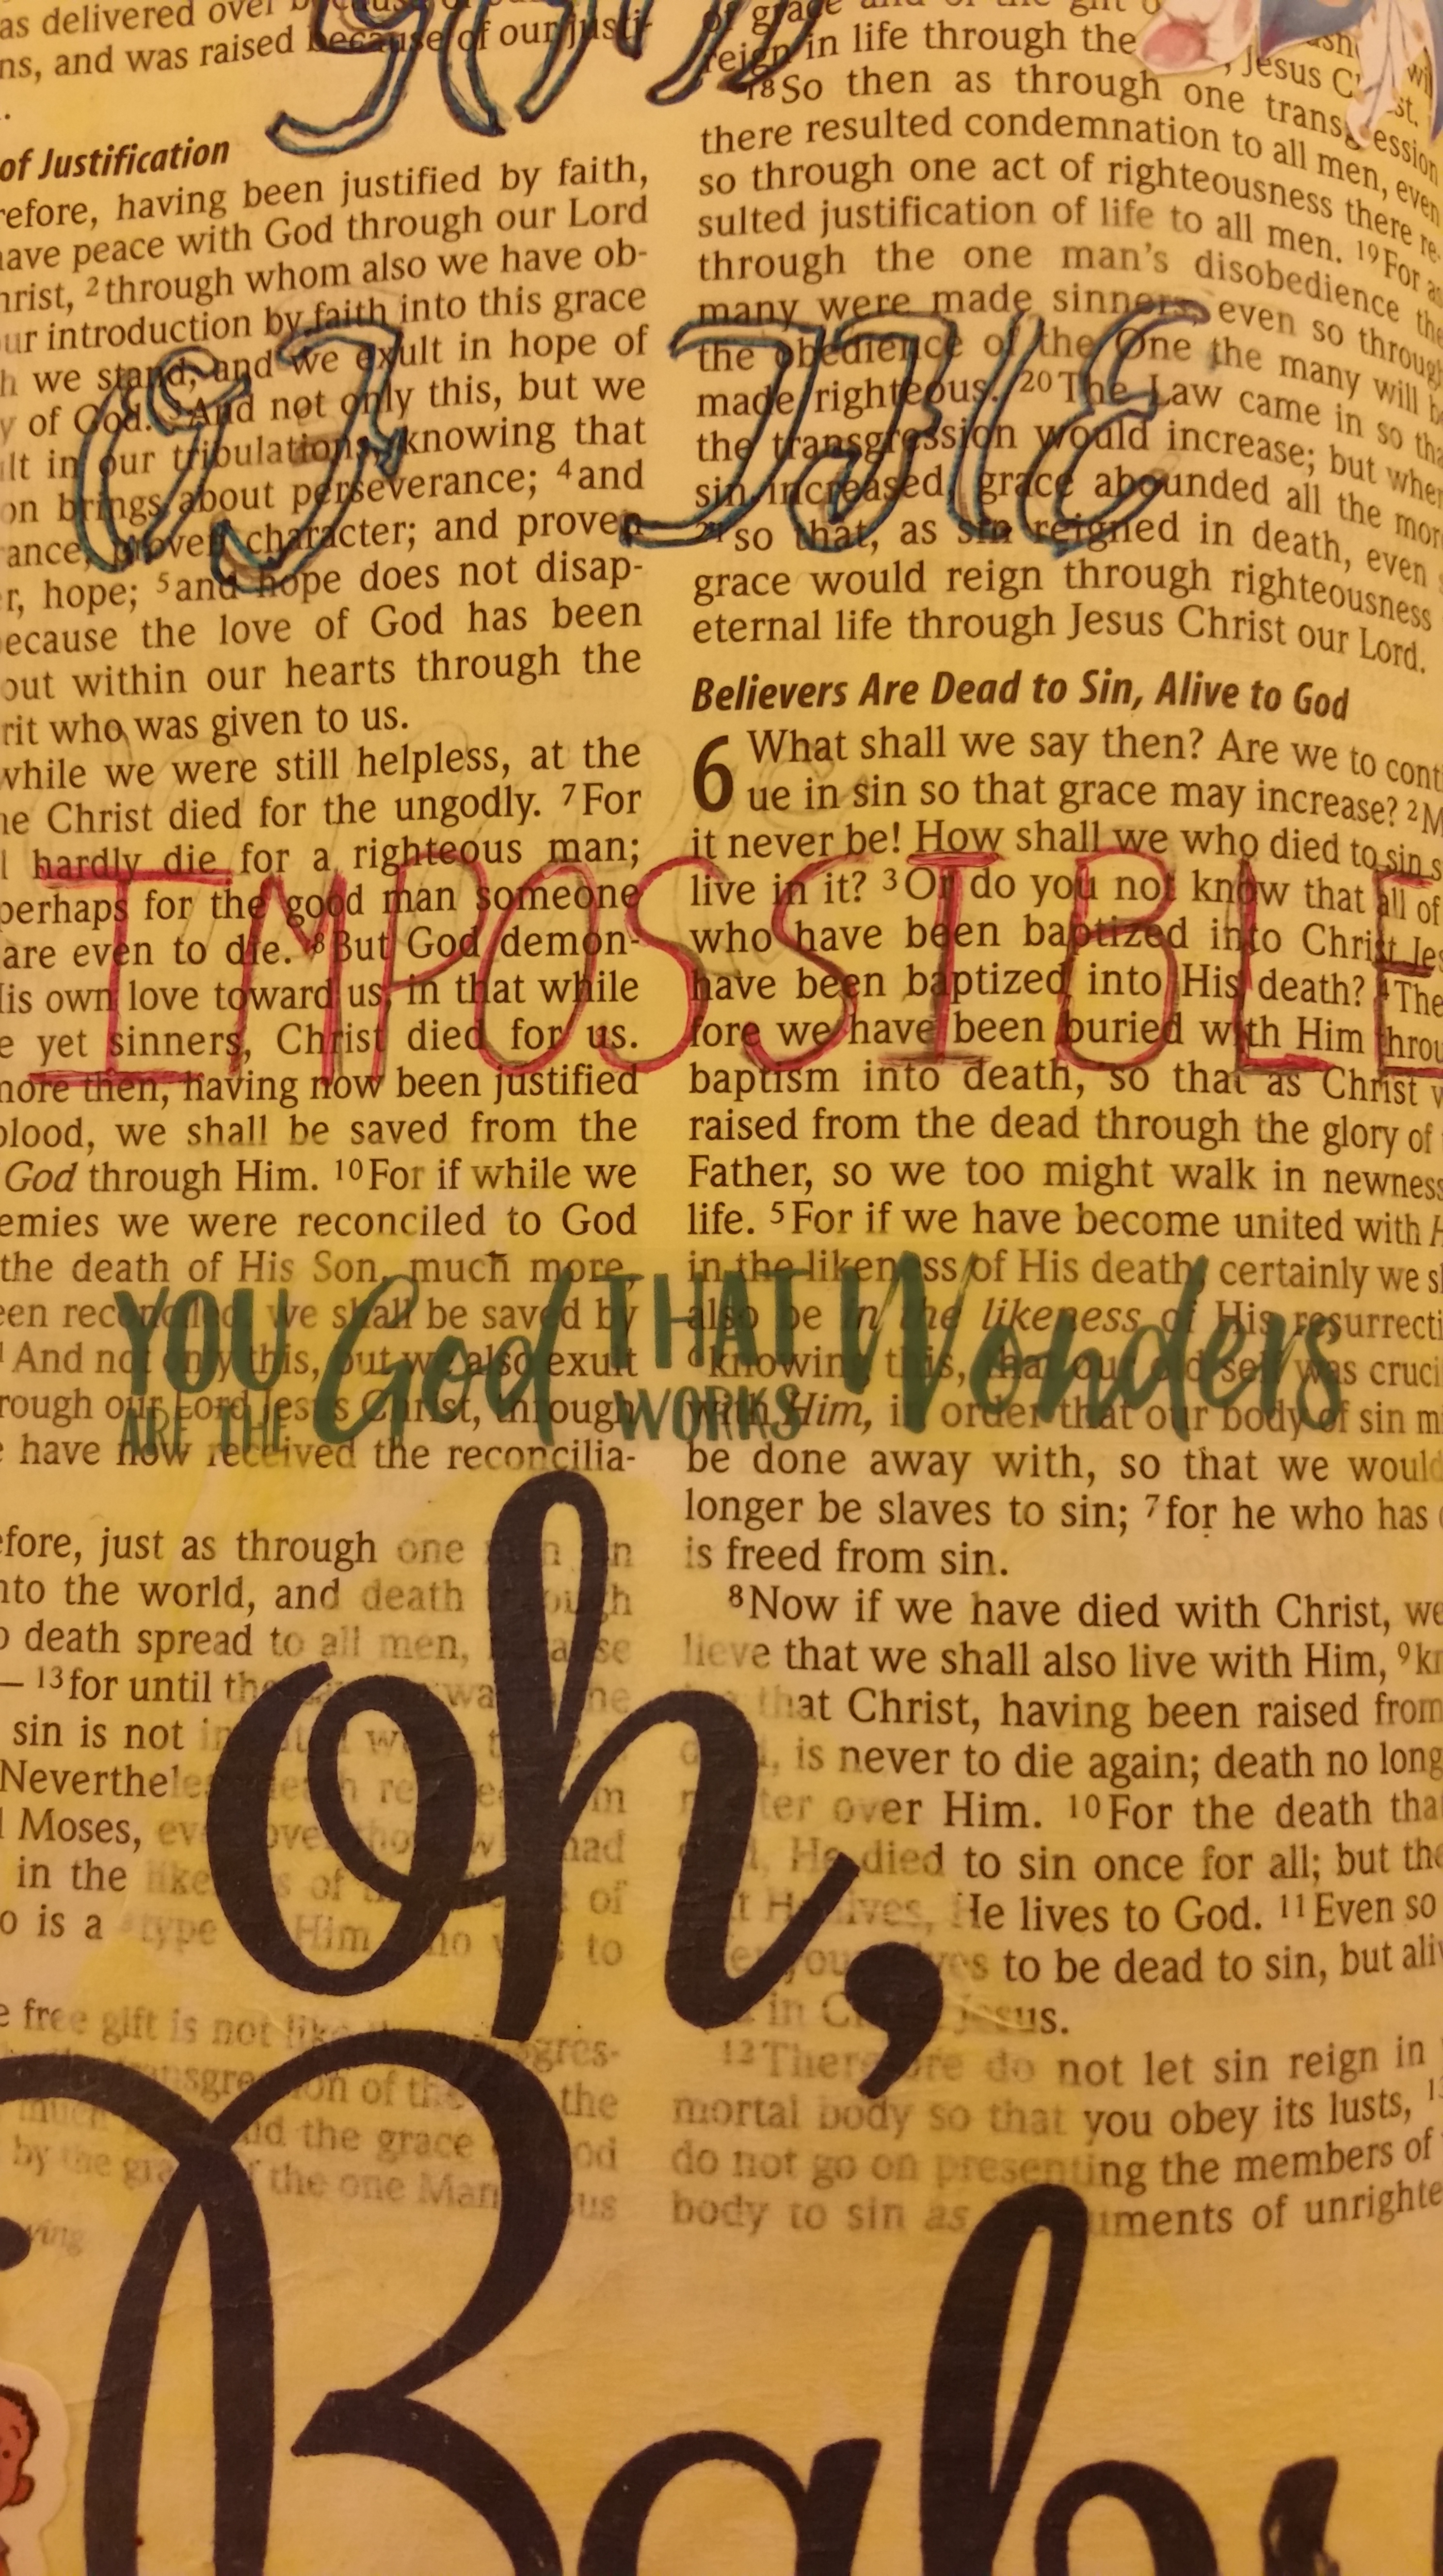 as delivered over because of
ns, and was raised because of our justi-
of Justification
refore, having been justified by faith,
have peace with God through our Lord
hrist, 2 through whom also we have ob-
ur introduction by faith into this grace
h we stand; and we exult in hope of
y of God. 3 And not only this, but we
ult in our tribulations, knowing that
on brings about perseverance; 4 and
rance, proven character; and proven
r, hope; 5 and hope does not disap-
because the love of God has been
out within our hearts through the
rit who was given to us.
while we were still helpless, at the
ne Christ died for the ungodly. 7 For
l hardly die for a righteous man;
perhaps for the good man someone
are even to die. 8 But God demon-
His own love toward us, in that while
e yet sinners, Christ died for us.
more then, having now been justified
blood, we shall be saved from the
God through Him. 10 For if while we
emies we were reconciled to God
the death of His Son, much more,
een reconciled, we shall be saved by
And not only this, but we also exult
rough our Lord Jesus Christ, through
e have now received the reconcilia-
efore, just as through one
nto the world, and death
o death spread to all men,
— 13 for until
sin is not
Nevertheless
Moses,
in the
o is a type Him to
e free gift is not like
the
the grace
by the of the one Man
of grace and of the gift
reign in life through the
, Jesus
18 So then as through one transgression
there resulted condemnation to all men, even
so through one act of righteousness there re-
sulted justification of life to all men. 19 For as
through the one man's disobedience the
many were made sinners, even so through
the obedience of the One the many will be
made righteous. 20 The Law came in so tha
the transgression would increase; but wher
sin increased, grace abounded all the mor
21 so that, as sin reigned in death, even
grace would reign through righteousness
eternal life through Jesus Christ our Lord.
Believers Are Dead to Sin, Alive to God
6 What shall we say then? Are we to cont
ue in sin so that grace may increase? 2 M
it never be! How shall we who died to sin s
live in it? 3 Or do you not know that all of
who have been baptized into Christ Jes
have been baptized into His death? 4 The
fore we have been buried with Him throu
baptism into death, so that as Christ w
raised from the dead through the glory of
Father, so we too might walk in newness
life. 5 For if we have become united with H
in the likeness of His death, certainly we sh
also be in the likeness of His resurrecti
6 knowing this, that our old self was cruci
with Him, in order that our body of sin m
be done away with, so that we would
longer be slaves to sin; 7 for he who has
is freed from sin.
8 Now if we have died with Christ, we
lieve that we shall also live with Him, 9 kn
that Christ, having been raised from
, is never to die again; death no long
over Him. 10 For the death tha
, He died to sin once for all; but the
He lives, He lives to God. 11 Even so
to be dead to sin, but aliv
in Jesus.
12 Therefore do not let sin reign in
mortal body so that you obey its lusts, 13
do not go on presenting the members of
body to sin as uments of unrighte
IMPOSSIBLE
YOU God THAT Wonders
ARE THE WORKS
oh,
Baby